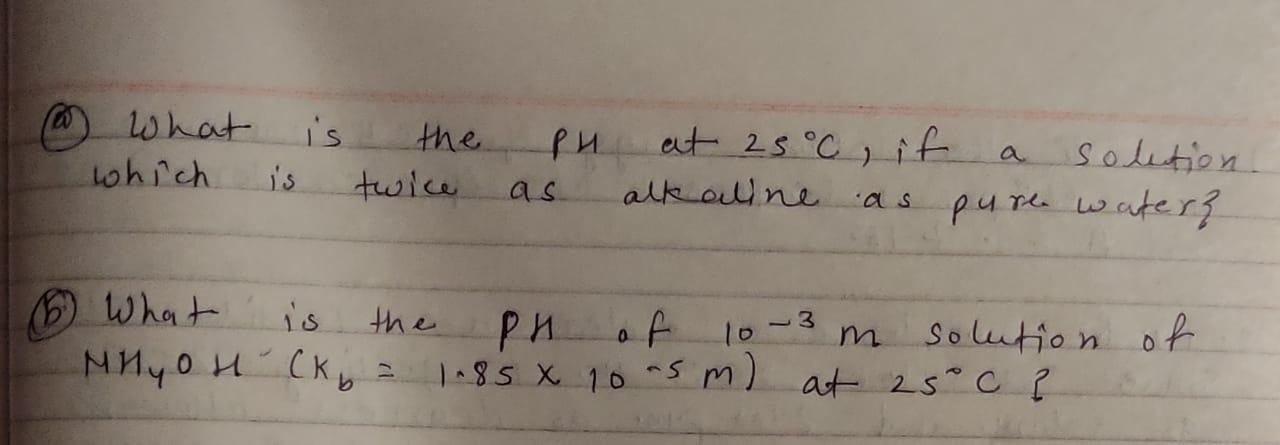 (a) What is the PH at 25°C, if a solution
which is twice as alkaline as pure water?
(b) What is the PH of 10-³ m solution of
NH₄OH (Kb = 1.85 X 10-⁵ m) at 25°C?